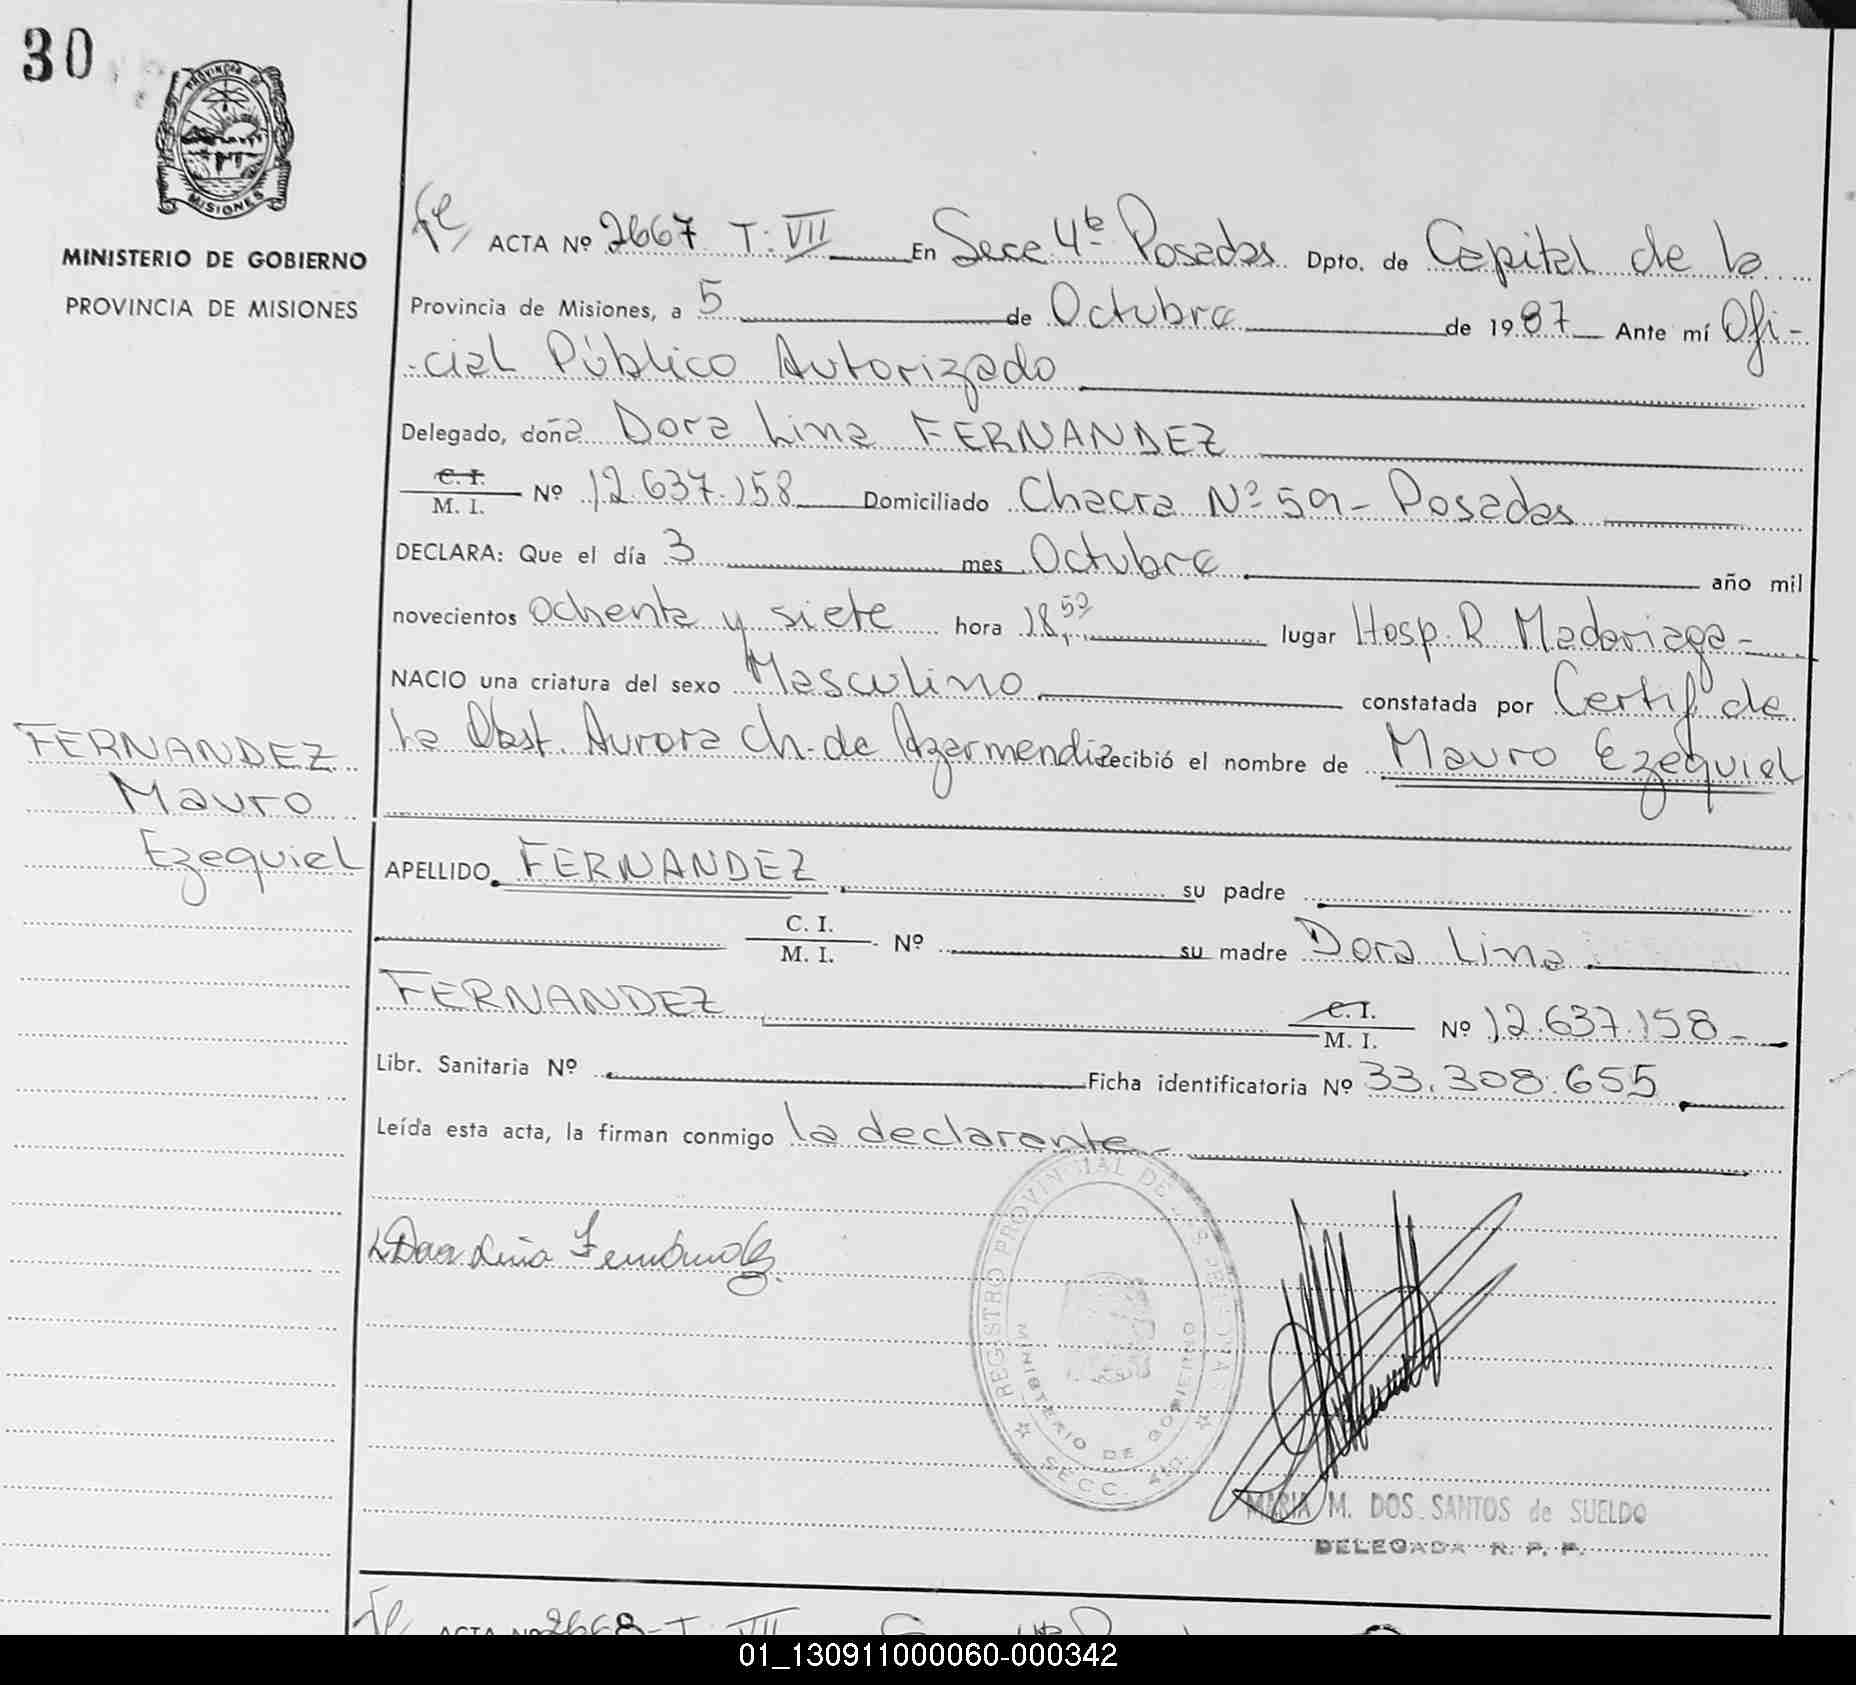 30
PROVINCIA DE
MISIONES
MINISTERIO DE GOBIERNO
PROVINCIA DE MISIONES
ACTA Nº 2667 T: VII En Secc 4ta Posadas Dpto. de Capital de la
Provincia de Misiones, a 5 de Octubre de 1987 Ante mí Ofi-
cial Público Autorizado
Delegado, doña Dora Lina FERNANDEZ
C. I. / M. I. Nº 12.637.158 Domiciliado Chacra Nº 59 - Posadas
DECLARA: Que el día 3 mes Octubre año mil
novecientos ochenta y siete hora 18,50 lugar Hosp. R Madariaga -
NACIO una criatura del sexo Masculino constatada por Certif de
la Obst. Aurora Ch. de Azarmendia recibió el nombre de Mauro Ezequiel
FERNANDEZ
Mauro
Ezequiel
APELLIDO FERNANDEZ su padre
C. I. / M. I. Nº su madre Dora Lina
FERNANDEZ C. I. / M. I. Nº 12.637.158 -
Libr. Sanitaria Nº Ficha identificatoria Nº 33.308.655
Leída esta acta, la firman conmigo la declarante
Dora Lina Fernández
REGISTRO PROVINCIAL DE LAS PERSONAS
MINISTERIO DE GOBIERNO
SECC. 4ta.
MARIA M. DOS SANTOS de SUELDO
DELEGADA R. P. P.
ACTA Nº 2668 - T VII
01_130911000060-000342